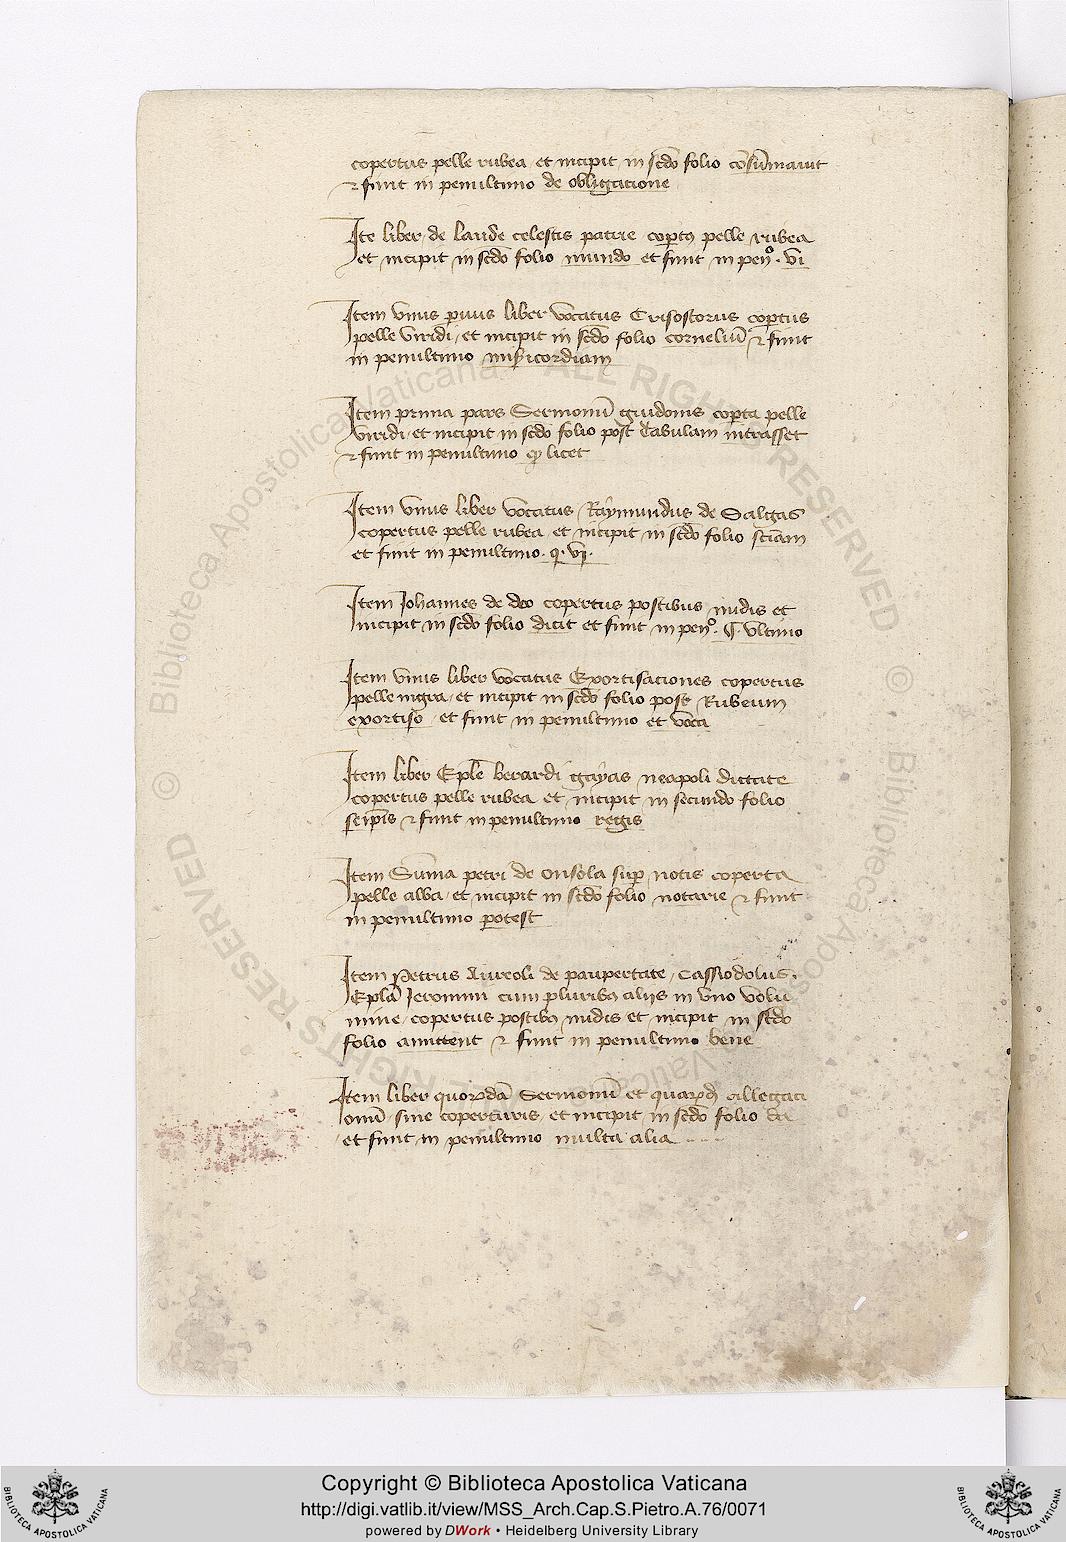 copertus pelle rubea et incipit in scdo folio consumauit
et finit in penultimo de obligatione
Ite liber de laude celestis patrie coptus pelle rubea
et incipit in scdo folio mundo et finit in peno. vi
Item vnus paruus liber vocatus Crisostorus copertus
pelle viridi et incipit in scdo folio cornelium et finit
in penultimo misericordiam
Item prima pars Sermonum guidonis coperta pelle
viridi et incipit in scdo folio post tabulam intrasset
et finit in penultimo licet
Item vnus liber vocatus Raymundus de Salgas
copertus pelle rubea et incipit in scdo folio sciam
et finit in penultimo. q. vi.
Item Johannes de deo copertus postibus nudis et
incipit in scdo folio dicit et finit in peno. ¶. vltimo
Item vnus liber vocatus Exortisationes copertus
pelle nigra et incipit in scdo folio post Rubeum
exortiso et finit in penultimo et voca
Item liber Eple berardi gayas neapoli dictate
copertus pelle rubea et incipit in secundo folio
et finit in penultimo regis
Item Suma petri de onsola sup notis coperta
pelle alba et incipit in scdo folio notarie et finit
in penultimo potest
Item Petrus Aureoli de paupertate, Cassiodolus,
Epla Jeronimi cum pluribus alijs in vno volu
mine copertus postibus nudis et incipit in scdo
folio amittent et finit in penultimo bene
Item liber quorda Sermonum et quarumd allegati
onum sine coperturis et incipit in scdo folio da
et finit in penultimo multa alia
© Biblioteca Apostolica Vaticana ALL RIGHTS RESERVED
Copyright © Biblioteca Apostolica Vaticana
http://digi.vatlib.it/view/MSS_Arch.Cap.S.Pietro.A.76/0071
powered by DWork • Heidelberg University Library
BIBLIOTECA APOSTOLICA VATICANA
BIBLIOTECA APOSTOLICA VATICANA